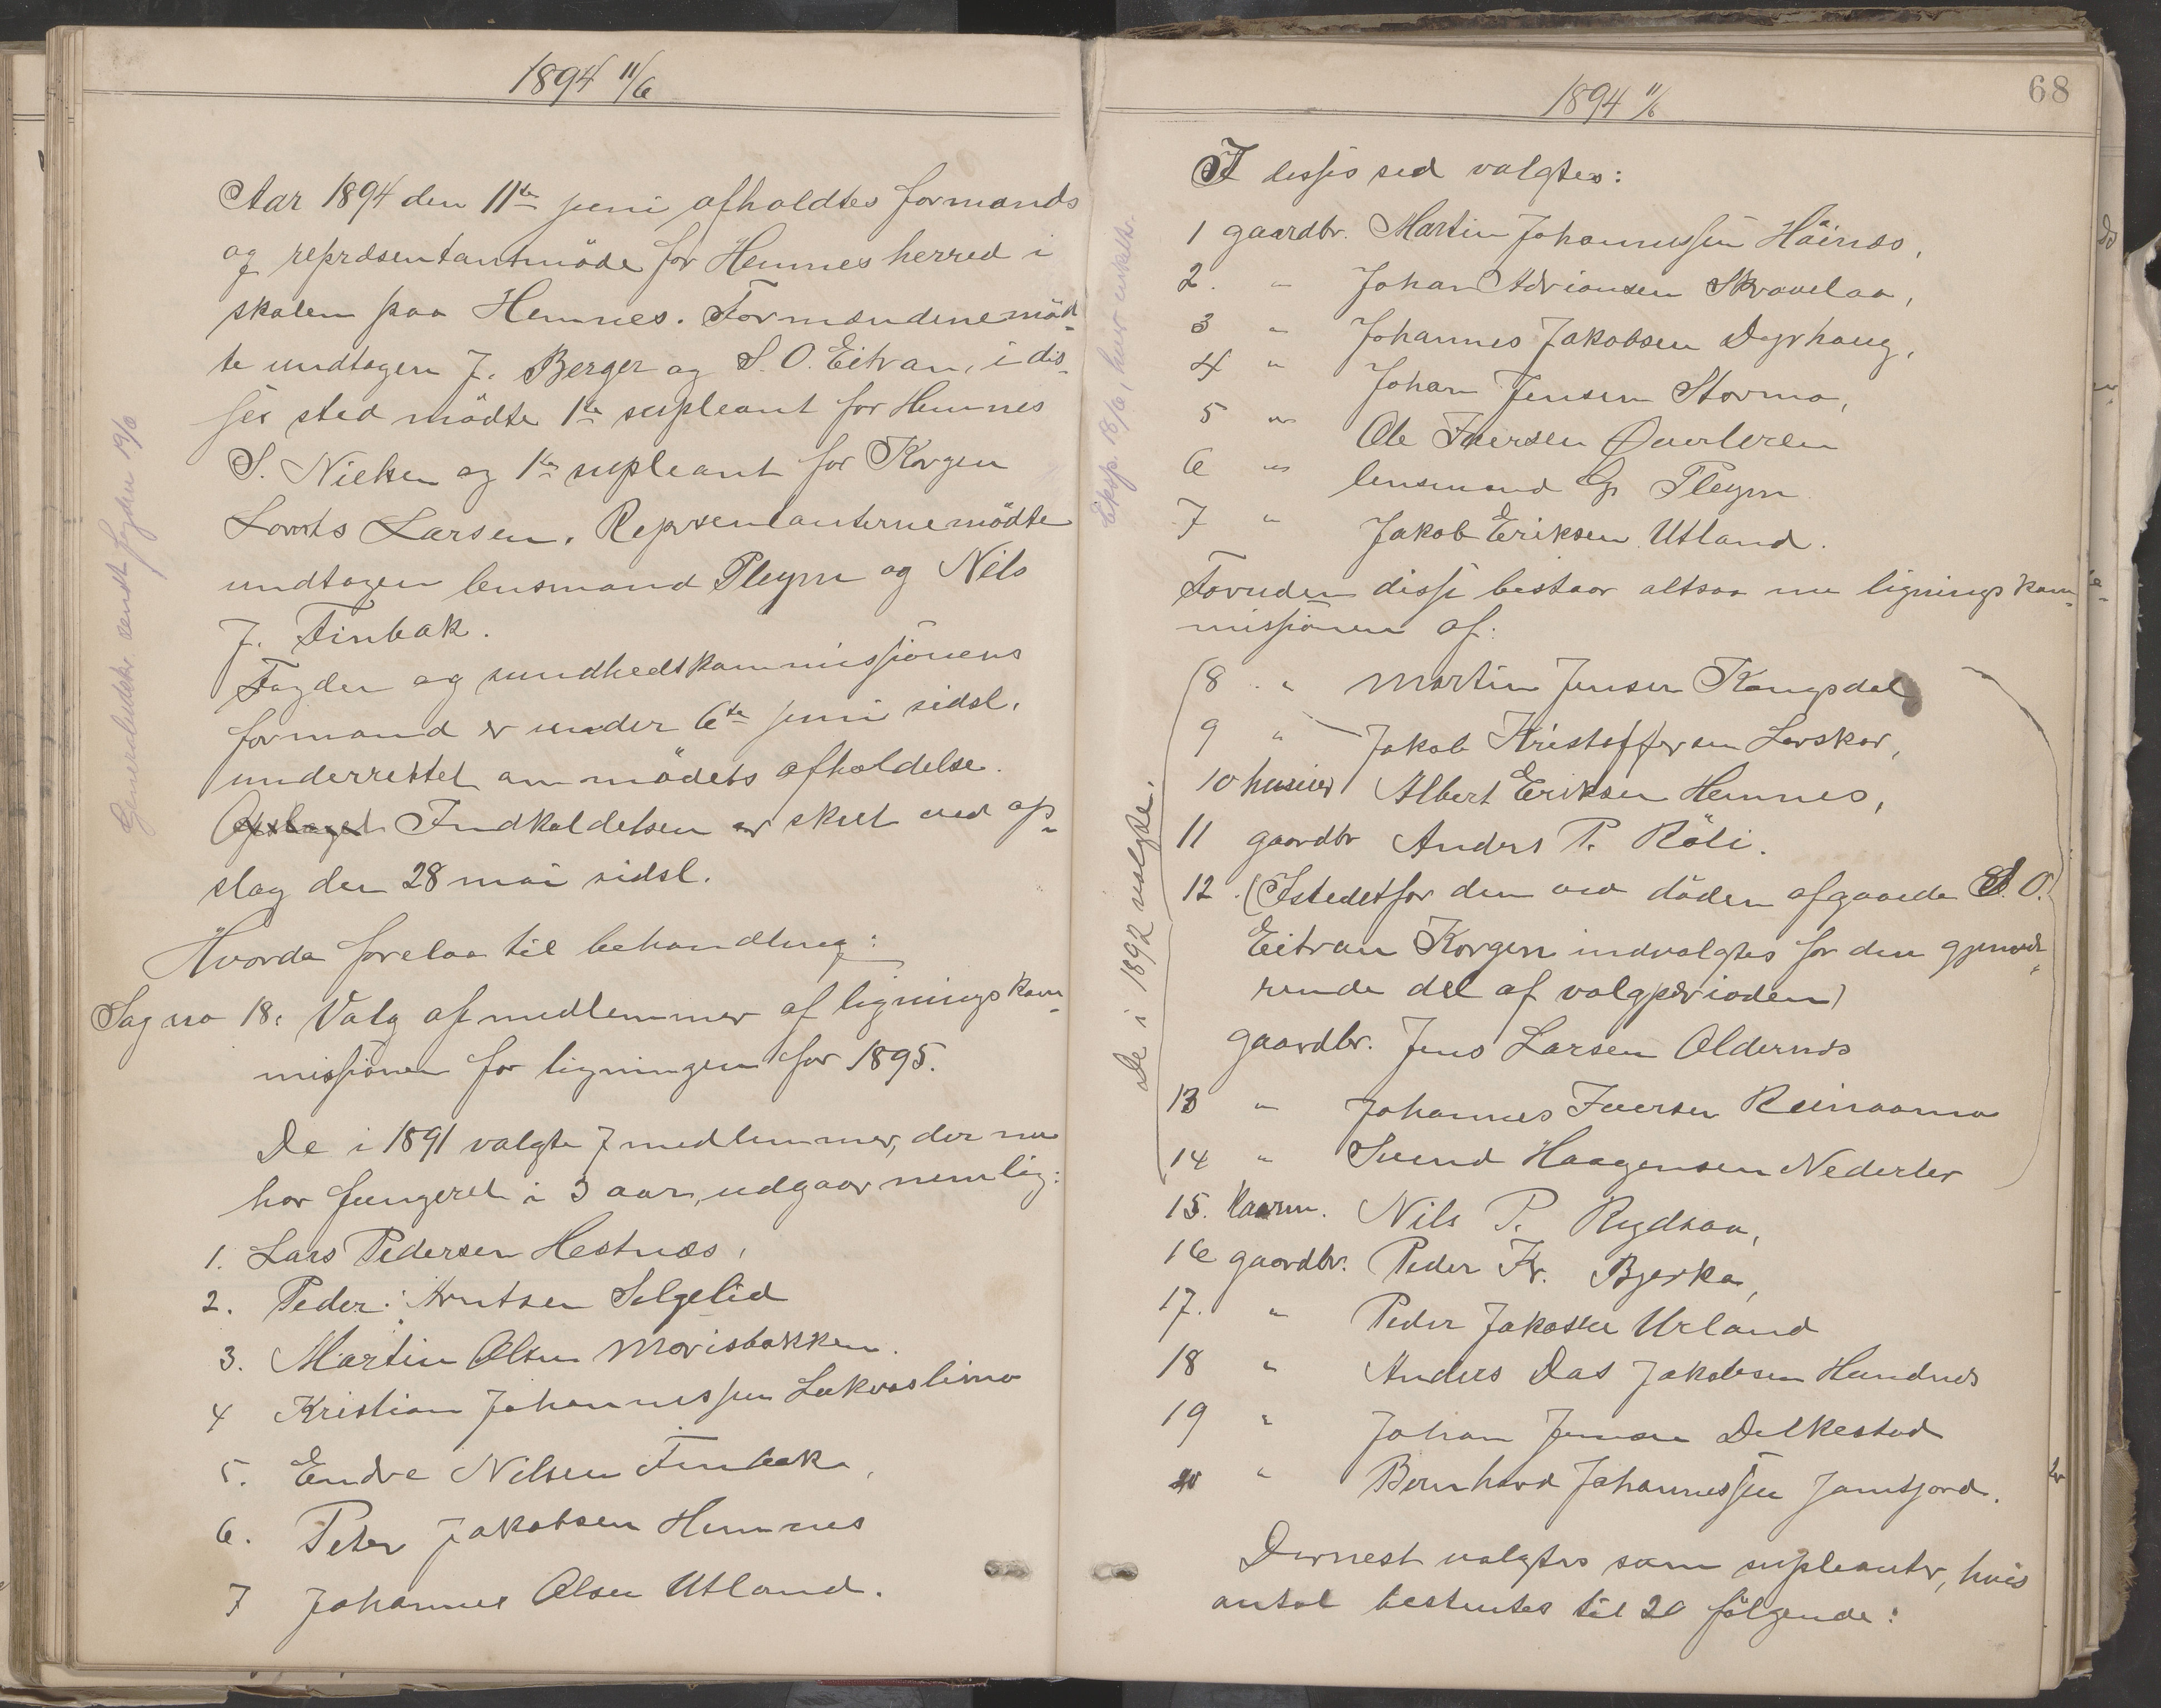 1894 11/6
Aar 1894 den 11te juni afholdtes formands
og repræsentantmöde for Hemnes herred i
skolen paa Hemnes. Formændene möd-
te undtagen J. Berger og S. O. Eitran, i dis-
ses sted mödte 1te supleant for Hemnes
S. Nielsen og 1te supleant for Korgen
Lorents Larsen. Reprsentanterne mödte
undtagen lensmand Pleym og Nils
J. Finbak.
Fogden og sundhedskommissionens
formand er under 6te juni sidsl.
underrettet om mödets afholdelse.
Opslaget Indkaldelsen er skeet ved op-
slag den 28 mai sidsl.
Hvorda forelaa til behandling:
Sag no 18. Valg af medlemmer af ligningskom-
missionen for ligningen for 1895.
De i 1891 valgte 7 medlemmer, der nu
har fungeret i 3 aar, udgaar nemlig:
1. Lars Pedersen Hestnæs,
2. Peder Knutsen Selgelid
3. Martin Olsen Morisbakken.
4 Kristian Johannessen Lukvaslimo
5. Endre Nilsen Finbak,
6. Peter Jakobsen Hemnes
7 Johannes Olsen Utland.
Generalbudsttr. sendt fogden 19/6
1894 11/6
68
I disses sed valgtes:
1 gaardbr. Martin Johannessen Håinæs,
2. " Johan Adriansen Skravelaa,
3 " Johannes Jakobsen Dyrhaug,
4 " Johan Jensen Stormo,
5 " Ole Iversen Överleren
6 " lensmand G. Pleym
7 " Jakob Eriksen Utland.
Foruden disse bestaar altsaa nu ligningskom-
missionen af:
8 " Martin Jensen Kongsdal
9 " Jakob Kristoffersen Lerskar,
10 huseier Albert Eriksen Hemnes,
11 gaardbr Anders P. Röli.
12. (Istedetfor den ved döden afgaaede S. O.
Eitran Korgen indvalgtes for den gjenvæ-
rende del af valgperioden)
gaardbr. Jens Larsen Oldernæs
13 " Johannes Iversen Reinaamo
14 " Svend Haagensen Nederler
15. kaarm. Nils P. Rydsaa,
16 gaardbr. Peder Kr. Bjerka,
17. " Peder Jakobsen Urland
18 " Anders Das Jakobsen Hundnes
19 " Johan Jensen Dilkestad
20 " Bernhard Johannessen Jamtjord.
Dernest valgtes som supleanter, hvis
antal bestemtes til 20 fölgende:
De i 1892 valgte.
Eksp. 18/6, hver enkelt.